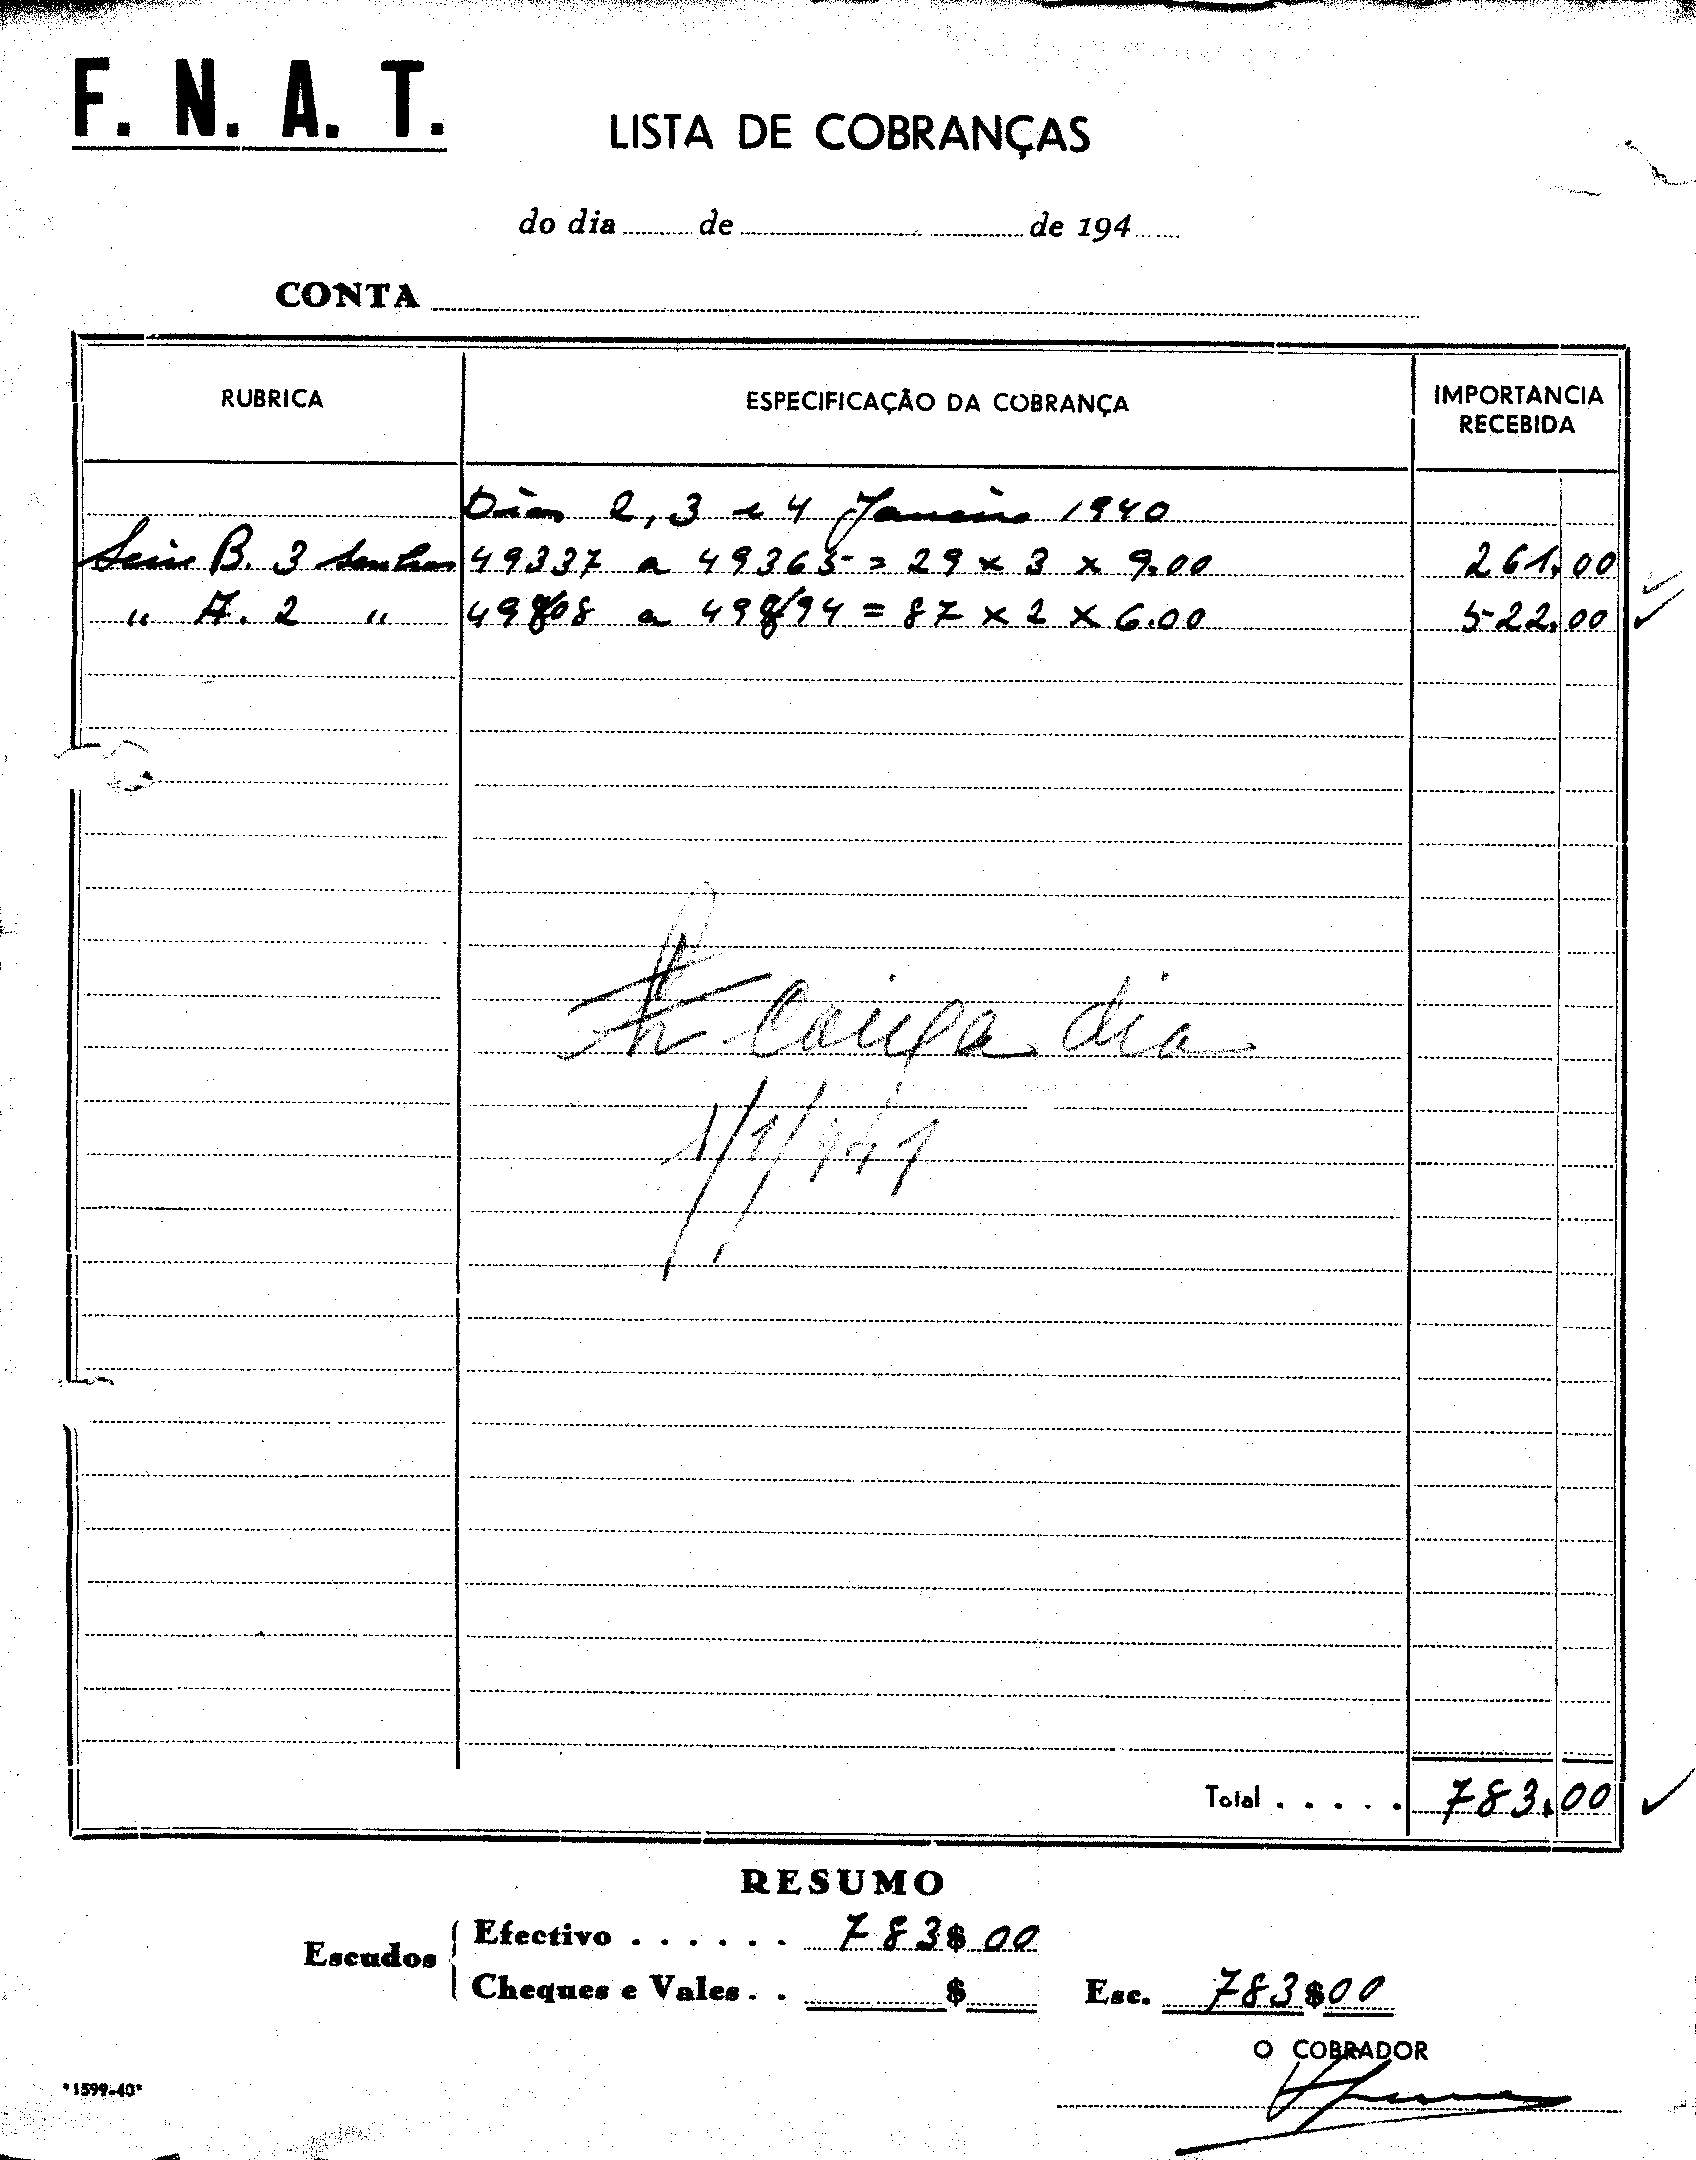 F. N. A. T.
LISTA DE COBRANÇAS
do dia ........ de ........................ de 194......
CONTA
RUBRICA ESPECIFICAÇÃO DA COBRANÇA IMPORTANCIA RECEBIDA
Dias 2, 3 e 4 Janeiro 1940
Série B. 3 Senhas 49337 a 49365 = 29 x 3 x 9.00 261.00
" A. 2 " 49808 a 49894 = 87 x 2 x 6.00 522.00
dia
Total . . . . . 783.00
RESUMO
Escudos
Efectivo . . . . . . 783$00
Cheques e Vales . . $ Esc. 783$00
O COBRADOR
"1599-40"